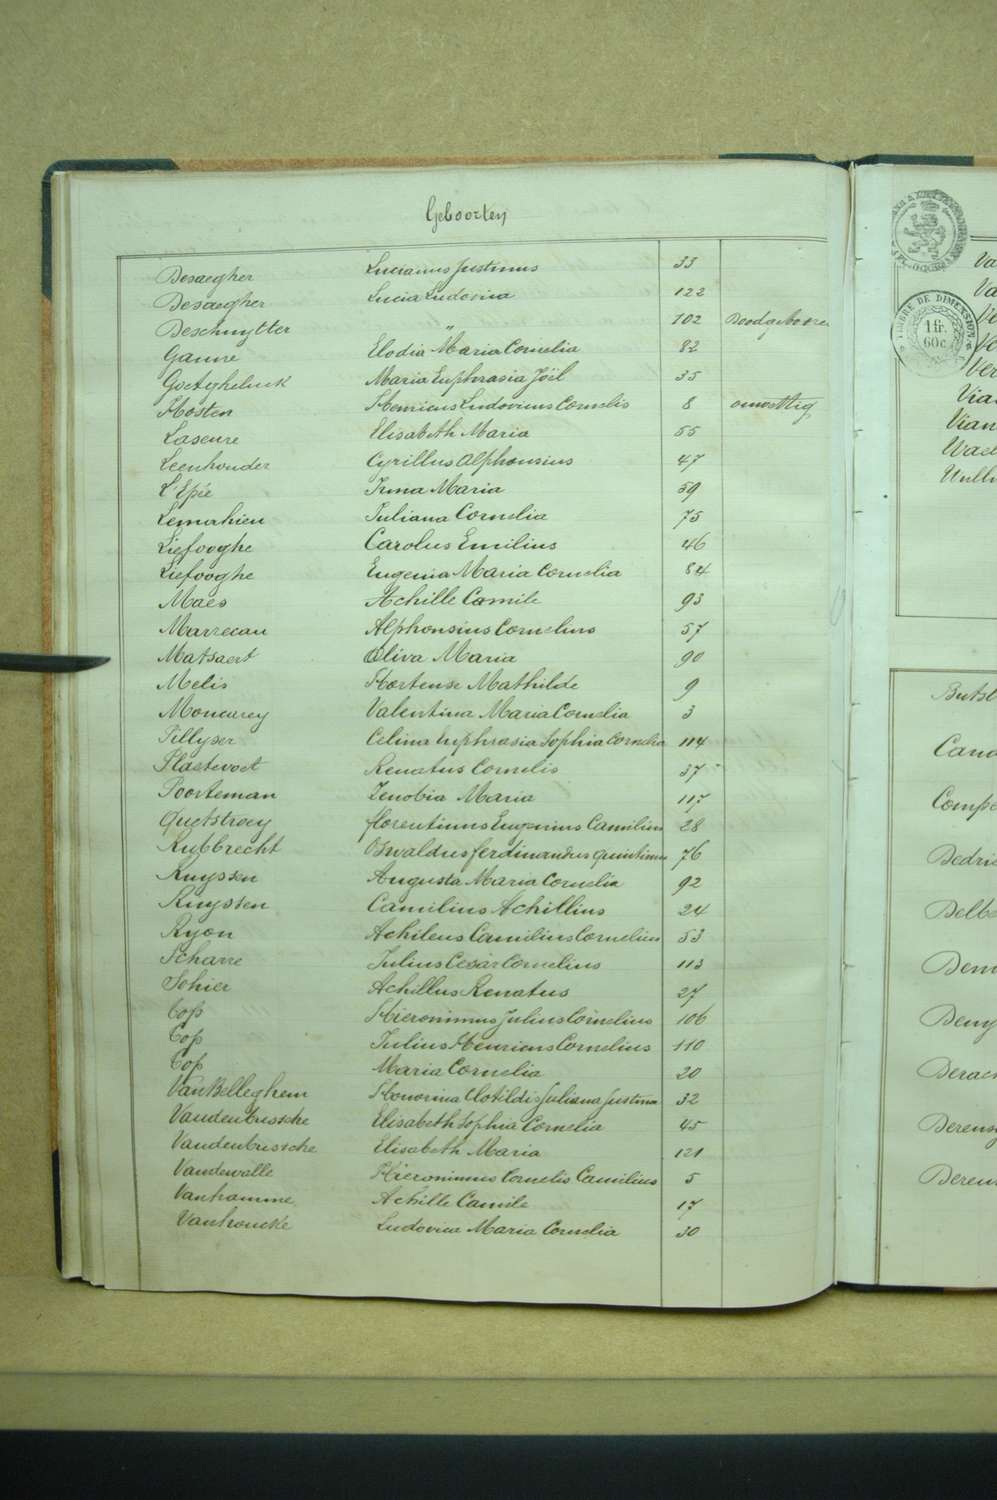 Geboorten
Desaegher Lucianus Justinus 33
Desaegher Lucia Ludovica 122
Deschuytter " 102 Doodgebore
Ganne Elodia Maria Cornelia 82
Goetghelück Maria Euphrasia Joël 35
Hosten Henricus Ludovicus Cornelis 8 onwettig
Laseure Elisabeth Maria 55
Leenhouder Cyrillus Alphonsius 47
L'Epée Irma Maria 59
Lemahieu Juliana Cornelia 75
Liefooghe Carolus Emilius 46
Liefooghe Eugenia Maria Cornelia 84
Maes Achille Camile 93
Marrecau Alphonsius Cornelius 57
Matsaert Oliva Maria 90
Melis Hortense Mathilde 9
Moncarey Valentina Maria Cornelia 3
Pillyser Celina Euphrasia Sophia Cornelia 114
Plaetevoet Renatus Cornelis 37
Poorteman Zenobia Maria 117
Quetstroey florentinus Eugenius Camilius 28
Rubbrecht Oswaldus ferdinandus quintinus 76
Ruyssen Augusta Maria Cornelia 92
Ruyssen Camilius Achillius 24
Ryon Achileus Camilius Cornelius 53
Scharre Julius César Cornelius 113
Sohier Achillus Renatus 27
Top Hieronimus Julius Cornelius 106
Top Julius Henricus Cornelius 110
Top Maria Cornelia 20
VanBelleghem Honorina Clotildis Juliana Justina 32
Vandenbussche Elisabeth Sophia Cornelia 45
Vandenbussche Elisabeth Maria 121
Vandewalle Hieronimus Cornelis Camilius 5
Vanhamme Achille Camile 17
Vanhoucke Ludovica Maria Cornelia 30
TIMBRE DE DIMENSION
1 fr.
60 c
Va
Va
Ve
Ve
Ver
Via
Vian
Wae
Wull
Buts
Cand
Compe
Dedri
Delbe
Dem
Deny
Derae
Derens
Dereu